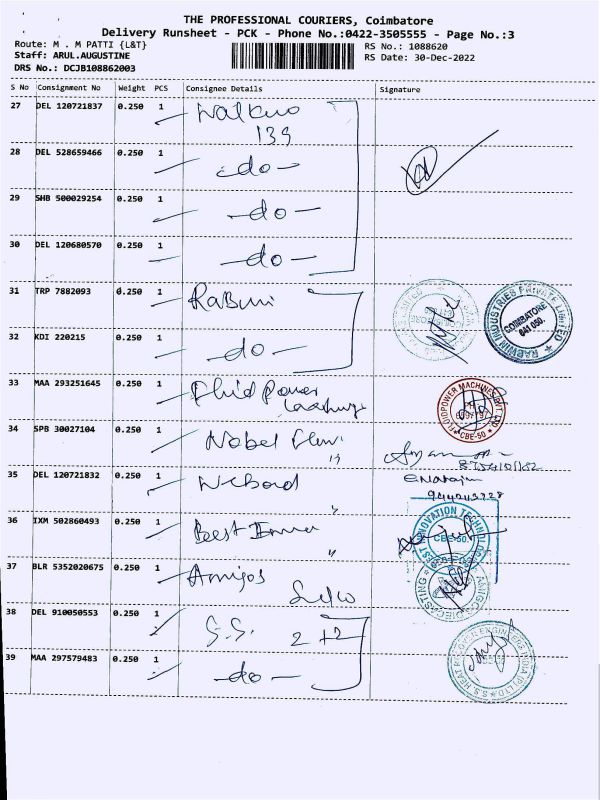 THE PROFESSIONAL COURIERS, Coimbatore
Delivery Runsheet - PCK - Phone No.:0422-3505555 - Page No.:3
Route: M . M PATTI {L&T}
RS No.: 1088620
Staff: ARUL.AUGUSTINE
RS Date: 30-Dec-2022
DRS No.: DCJB108862003
S No Consignment No Weight PCS Consignee Details Signature
27 DEL 120721837 0.250 1
139
28 DEL 528659466 0.250 1 -do-
29 SHB 500029254 0.250 1 -do-
30 DEL 120680570 0.250 1 -do-
31 TRP 7882093 0.250 1
RABWIN INDUSTRIES PRIVATE LIMITED
COIMBATORE
641 050.
32 KDI 220215 0.250 1 -do-
33 MAA 293251645 0.250 1 Fluid Power
FLUIDPOWER MACHINES PVT. LTD
CBE-50
34 SPB 30027104 0.250 1 Nobel
35 DEL 120721832 0.250 1
36 IXM 502860493 0.250 1 Best
BEST INNOVATION TECHNOLOGIES
CBE-50.
37 BLR 5352020675 0.250 1 Amigos
38 DEL 910050553 0.250 1 S.S.
39 MAA 297579483 0.250 1 -do-